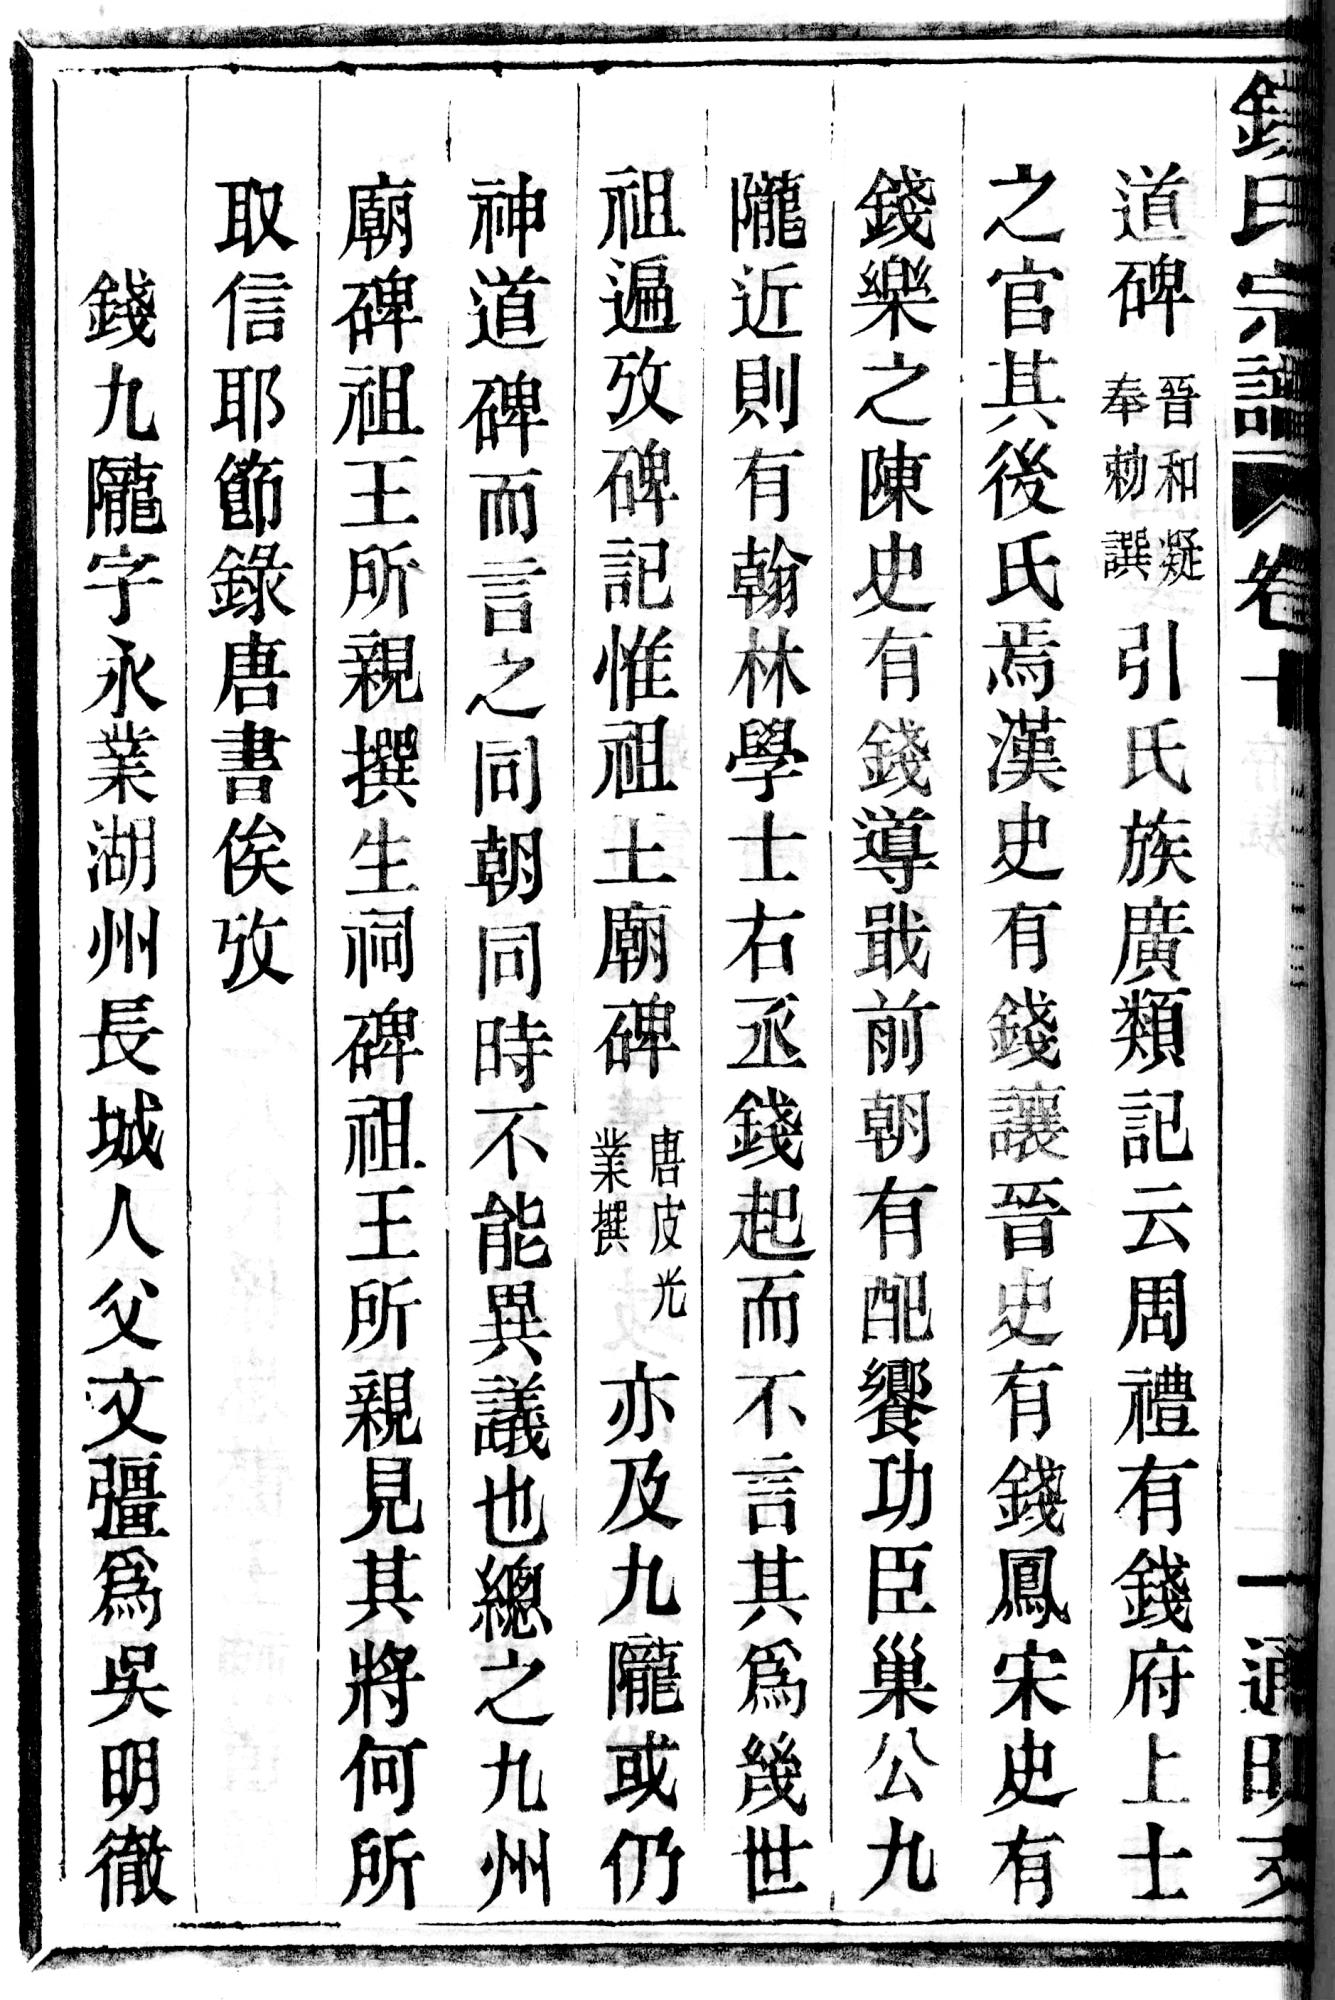 錢氏宗譜 卷十 一 通明支
道碑晉和凝奉勅譔引氏族廣類記云周禮有錢府上士
之官其後氏焉漢史有錢讓晉史有錢鳳宋史有
錢樂之陳史有錢導戢前朝有配饗功臣巢公九
隴近則有翰林學士右丞錢起而不言其爲幾世
祖遍攷碑記惟祖土廟碑唐皮光業撰亦及九隴或仍
神道碑而言之同朝同時不能異議也總之九州
廟碑祖王所親撰生祠碑祖王所親見其將何所
取信耶節錄唐書俟攷
錢九隴字永業湖州長城人父文彊爲吳明徹